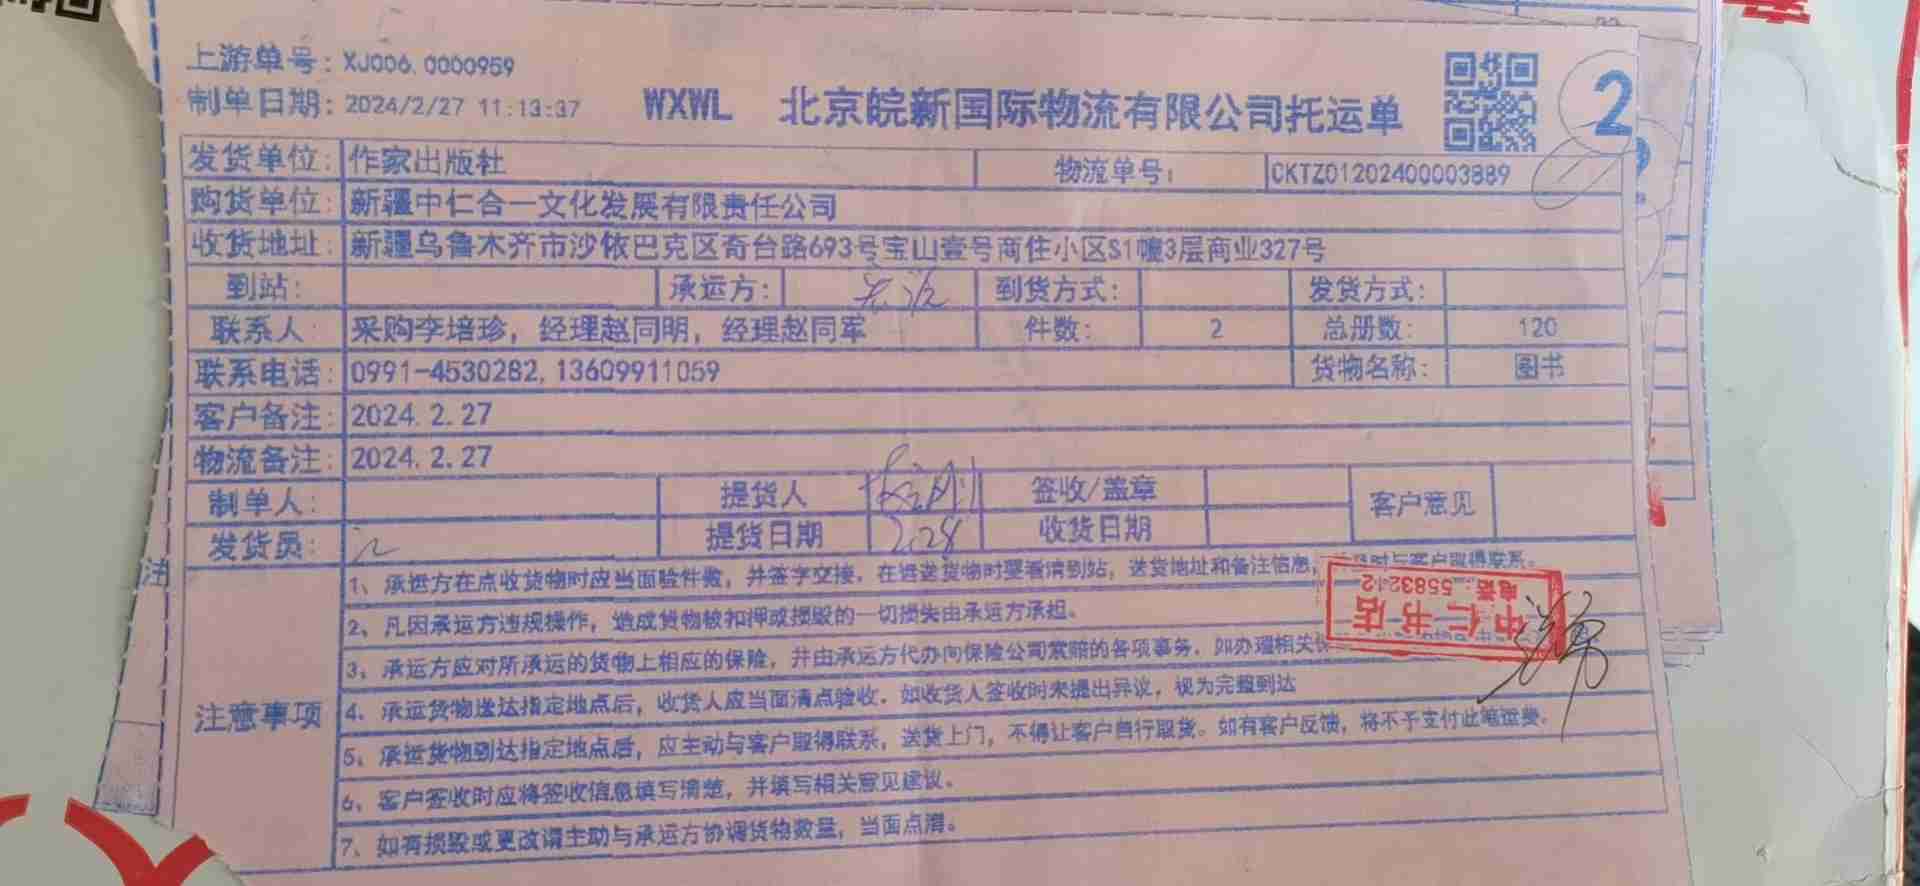 上游单号：XJ006.0000959
制单日期：2024/2/27 11:13:37 WXWL 北京皖新国际物流有限公司托运单 2
发货单位：作家出版社 物流单号： CKTZ01202400003889
购货单位：新疆中仁合一文化发展有限责任公司
收货地址：新疆乌鲁木齐市沙依巴克区奇台路693号宝山壹号商住小区S1幢3层商业327号
到站： 承运方： 到货方式： 发货方式：
联系人：采购李培珍，经理赵同明，经理赵同军 件数： 2 总册数： 120
联系电话：0991-4530282,13609911059 货物名称： 图书
客户备注：2024.2.27
物流备注：2024.2.27
制单人： 提货人 签收/盖章 客户意见
发货员： 提货日期 2.28 收货日期
注意事项
1、承运方在点收货物时应当面验件数，并签字交接。在运送货物时要看清到站，送货地址和备注信息，并及时与客户取得联系。
2、凡因承运方违规操作，造成货物被扣押或损毁的一切损失由承运方承担。
3、承运方应对所承运的货物上相应的保险，并由承运方代办向保险公司索赔的各项事务。如办理相关
4、承运货物送达指定地点后，收货人应当面清点验收。如收货人签收时未提出异议，视为完整到达
5、承运货物到达指定地点后，应主动与客户取得联系，送货上门，不得让客户自行取货。如有客户反馈，将不予支付此笔运费。
6、客户签收时应将签收信息填写清楚，并填写相关意见建议。
7、如有损毁或更改请主动与承运方协调货物数量，当面点清。
中仁书店
电话：5583212
注